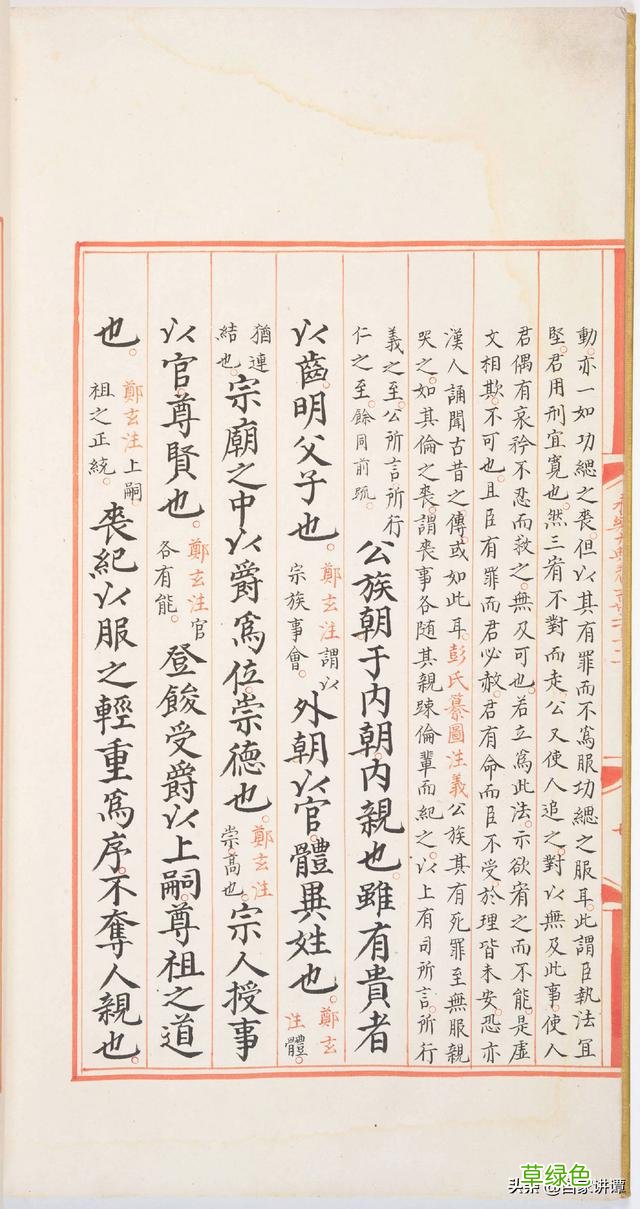 動。亦一如功緦之喪。但以其有罪而不爲服功緦之服耳。此謂臣執法宜
堅。君用刑宜寬也。然三宥不對而走。公又使人追之。對以無及此事。使人
君偶有哀矜不忍而救之。無及可也。若立爲此法。示欲宥之而不能。是虛
文相欺。不可也。且臣有罪而君必赦。君有命而臣不受。於理皆未安。恐亦
漢人誦聞古昔之傳。或如此耳。彭氏纂圖注義公族其有死罪至無服親
哭之。如其倫之喪。謂喪事各隨其親踈倫輩而紀之。以上有司所言。所行
義之至。公所言所行
仁之至。餘同前䟽。
公族朝于内朝。内親也。雖有貴者
以齒。明父子也。
鄭玄注謂以
宗族事會。
外朝以官。體異姓也。
鄭玄
注體
猶連
結也。
宗廟之中。以爵爲位。崇德也。
鄭玄注
崇。高也。
宗人授事
以官。尊賢也。
鄭玄注官
各有能。
登餕受爵以上嗣。尊祖之道
也。
鄭玄注上嗣。
祖之正統。
喪紀以服之輕重爲序。不奪人親也。
草绿色
头条 @百家讲谭